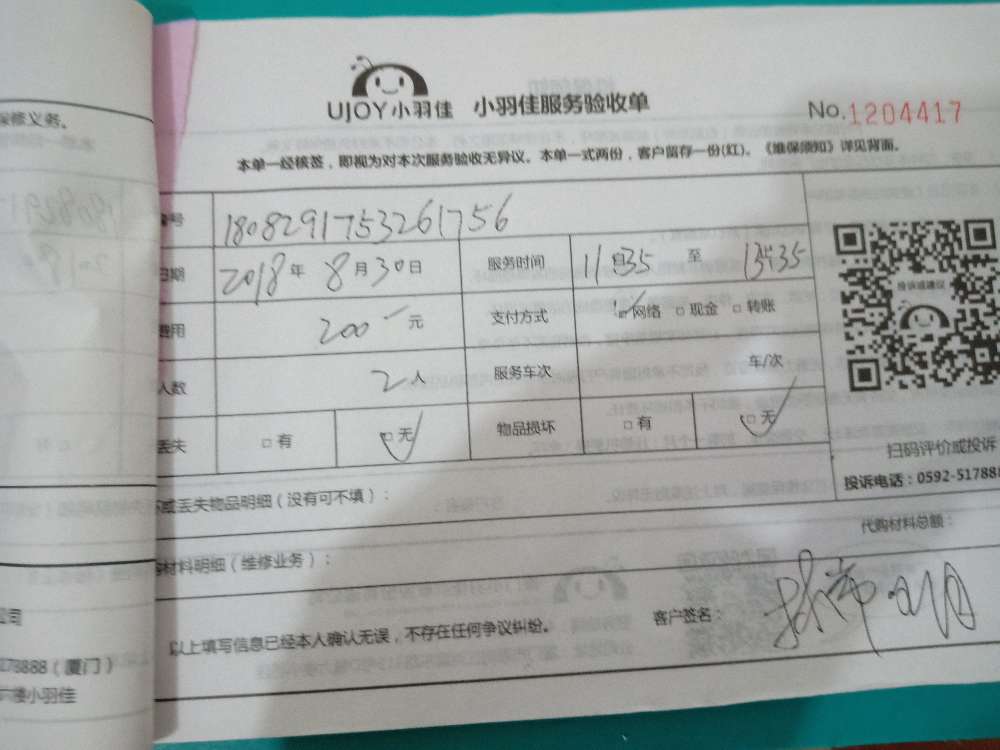 UJOY小羽佳 小羽佳服务验收单 No.1204417
本单一经核签，即视为对本次服务验收无异议。本单一式两份，客户留存一份(红)。《维保须知》详见背面。
号 1808291753261756
日期 2018年8月30日 服务时间 11 35 至 13 35
费用 200元 支付方式 ☑网络 □现金 □转账
人数 2人 服务车次 车/次
丢失 □有 ☑无 物品损坏 □有 ☑无
投诉或建议
扫码评价或投诉
投诉电话：0592-517888
或丢失物品明细（没有可不填）：
代购材料总额：
材料明细（维修业务）：
客户签名：
以上填写信息已经本人确认无误，不存在任何争议纠纷。
保修义务。
公司
278888（厦门）
楼小羽佳